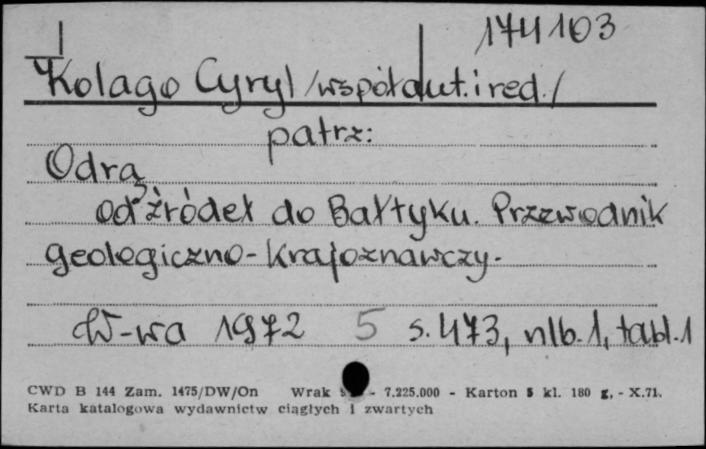 174103
Kolago Cyryl /współaut. i red./
patrz:
Odrą
od źródeł do Bałtyku. Przewodnik
geologiczno-krajoznawczy.
W-wa 1972 5 s. 473, nlb. 1, tabl. 1
CWD B 144 Zam. 1475/DW/On Wrak - 7.225.000 - Karton 5 kl. 180 g, - X.71.
Karta katalogowa wydawnictw ciągłych i zwartych